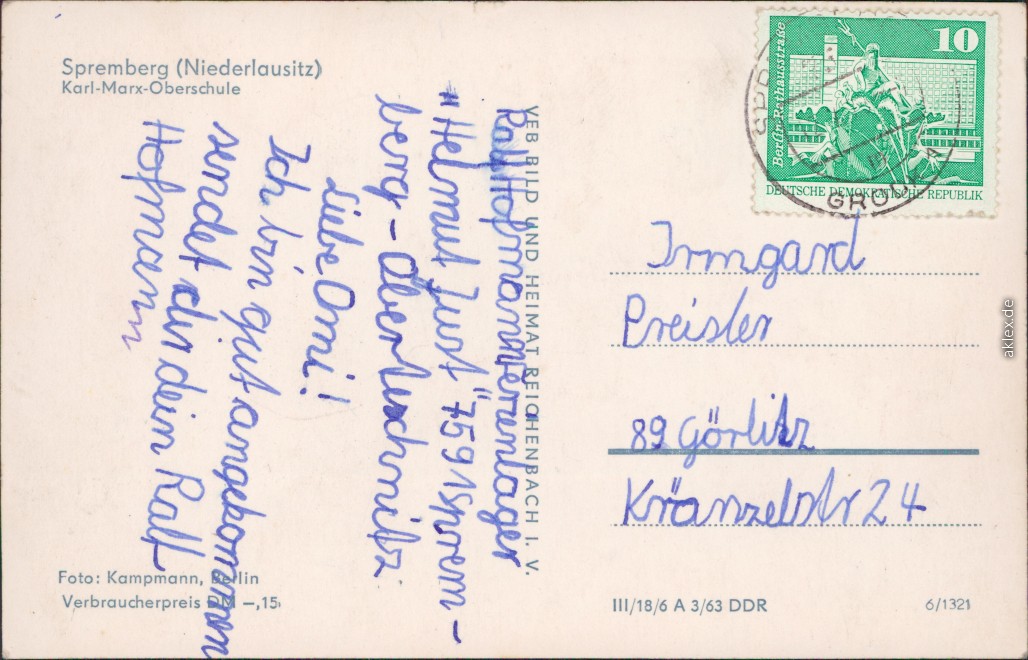 Spremberg (Niederlausitz)
Karl-Marx-Oberschule
Ralf Hofmann Ferienlager
"Helmut Just" 7591 Sprem-
berg - Oberteschnitz
Liebe Omi!
Ich bin gut angekommen
sendet dir dein Ralf
Hofmann
VEB BILD UND HEIMAT REICHENBACH I. V.
Foto: Kampmann, Berlin
Verbraucherpreis DM —,15
10
Berlin-Rathausstraße
DEUTSCHE DEMOKRATISCHE REPUBLIK
Irmgard
Preisler
89 Görlitz
Kränzelstr 24
III/18/6 A 3/63 DDR
6/1321
aklex.de